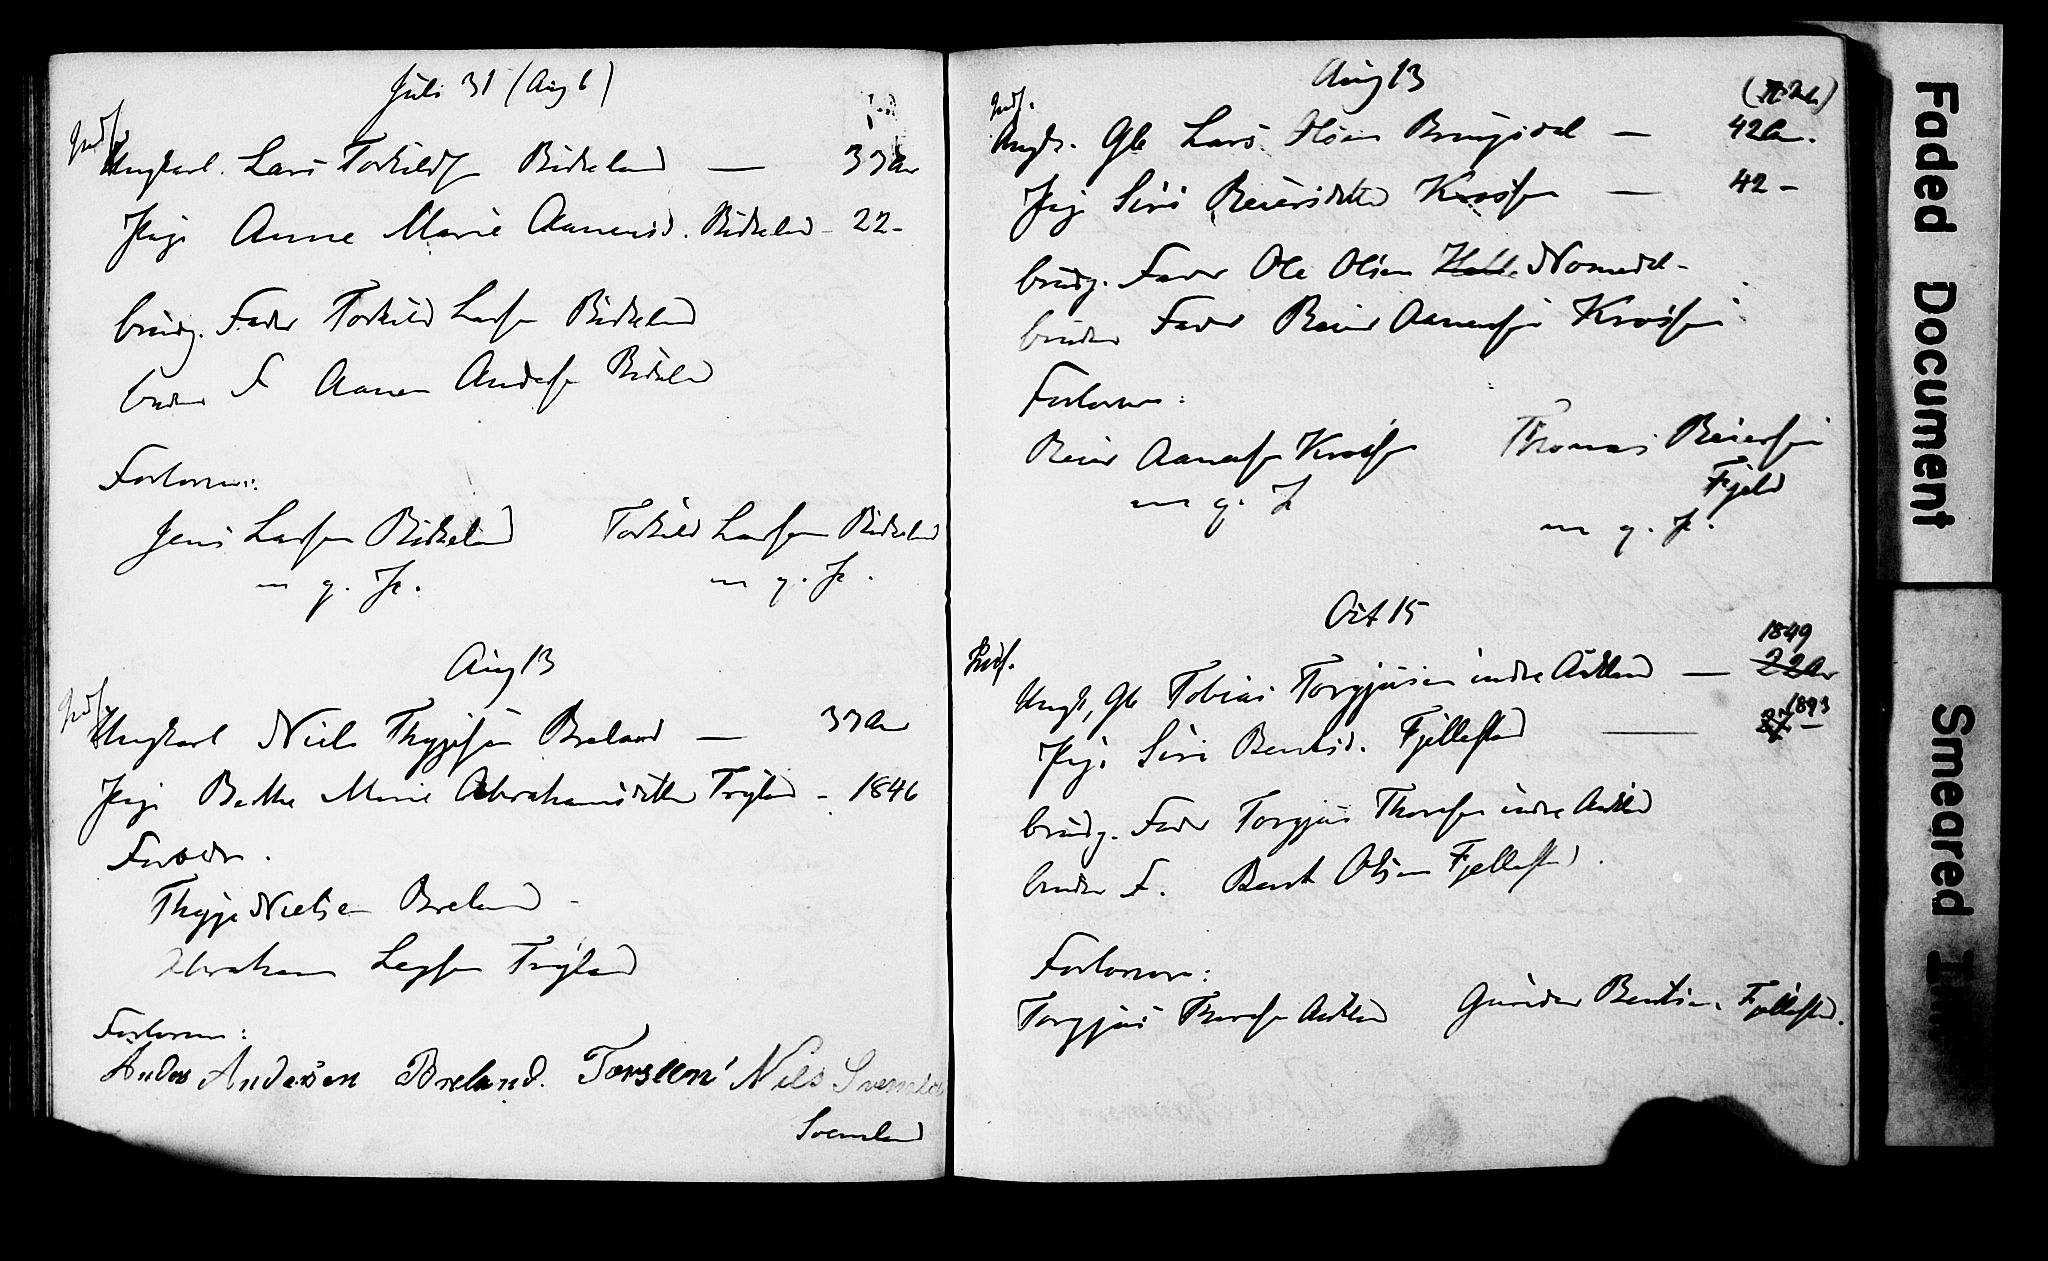 Juli 31 (Aug 6)
Indf.
Ungkarl. Lars Torkilds. Birkeland — 33 Aar
Pige Anne Marie Aanensd. Birkeland - 22 -
brudg. Fader Torkild Larsen Birkeland
bruden F Aanen Andersen Birkeland
Forlovere:
Jens Larsen Birkeland Torkild Larsen Birkeland
m. g. P. m. g. P.
Aug 13
Indf.
Ungkarl Niels Thygesen Breland — 33 Aar
Pige Berthe Marie Abrahamsdatter Trygland - 1846
Forældre.
Thyge Nielsen Breland -
Abraham Tryland
Forlovere:
Anders Andersen Breland. Torsten Nils
Svenland
Aug 13
Indf.
Ungk. Gb Lars Olsen — 42 Aar.
Pige Siri Reiersdatter Krossen — 42 -
brudg. Fader Ole Olsen Nomedal -
bruden Fader Reier Aanensen Krossen
Forlovere:
Reier Aanensen Krossen Thomas Reiersen
Fjeld
m. g. P. m. g. P.
Oct 15
Indf.
1849
Ungk, Gb Tobias Torgjusen indre Askland — 22 Aar
1893
Pige Siri Bentsd. Fjellestad — 27 -
brudg. Fader Torgjus Thorsen indre Askland
bruden F. Bent Olsen Fjellestad.
Forlovere:
Torgjus Thorsen Askland Gunder Bentsen Fjellestad.
Faded Document
Smeared Ink